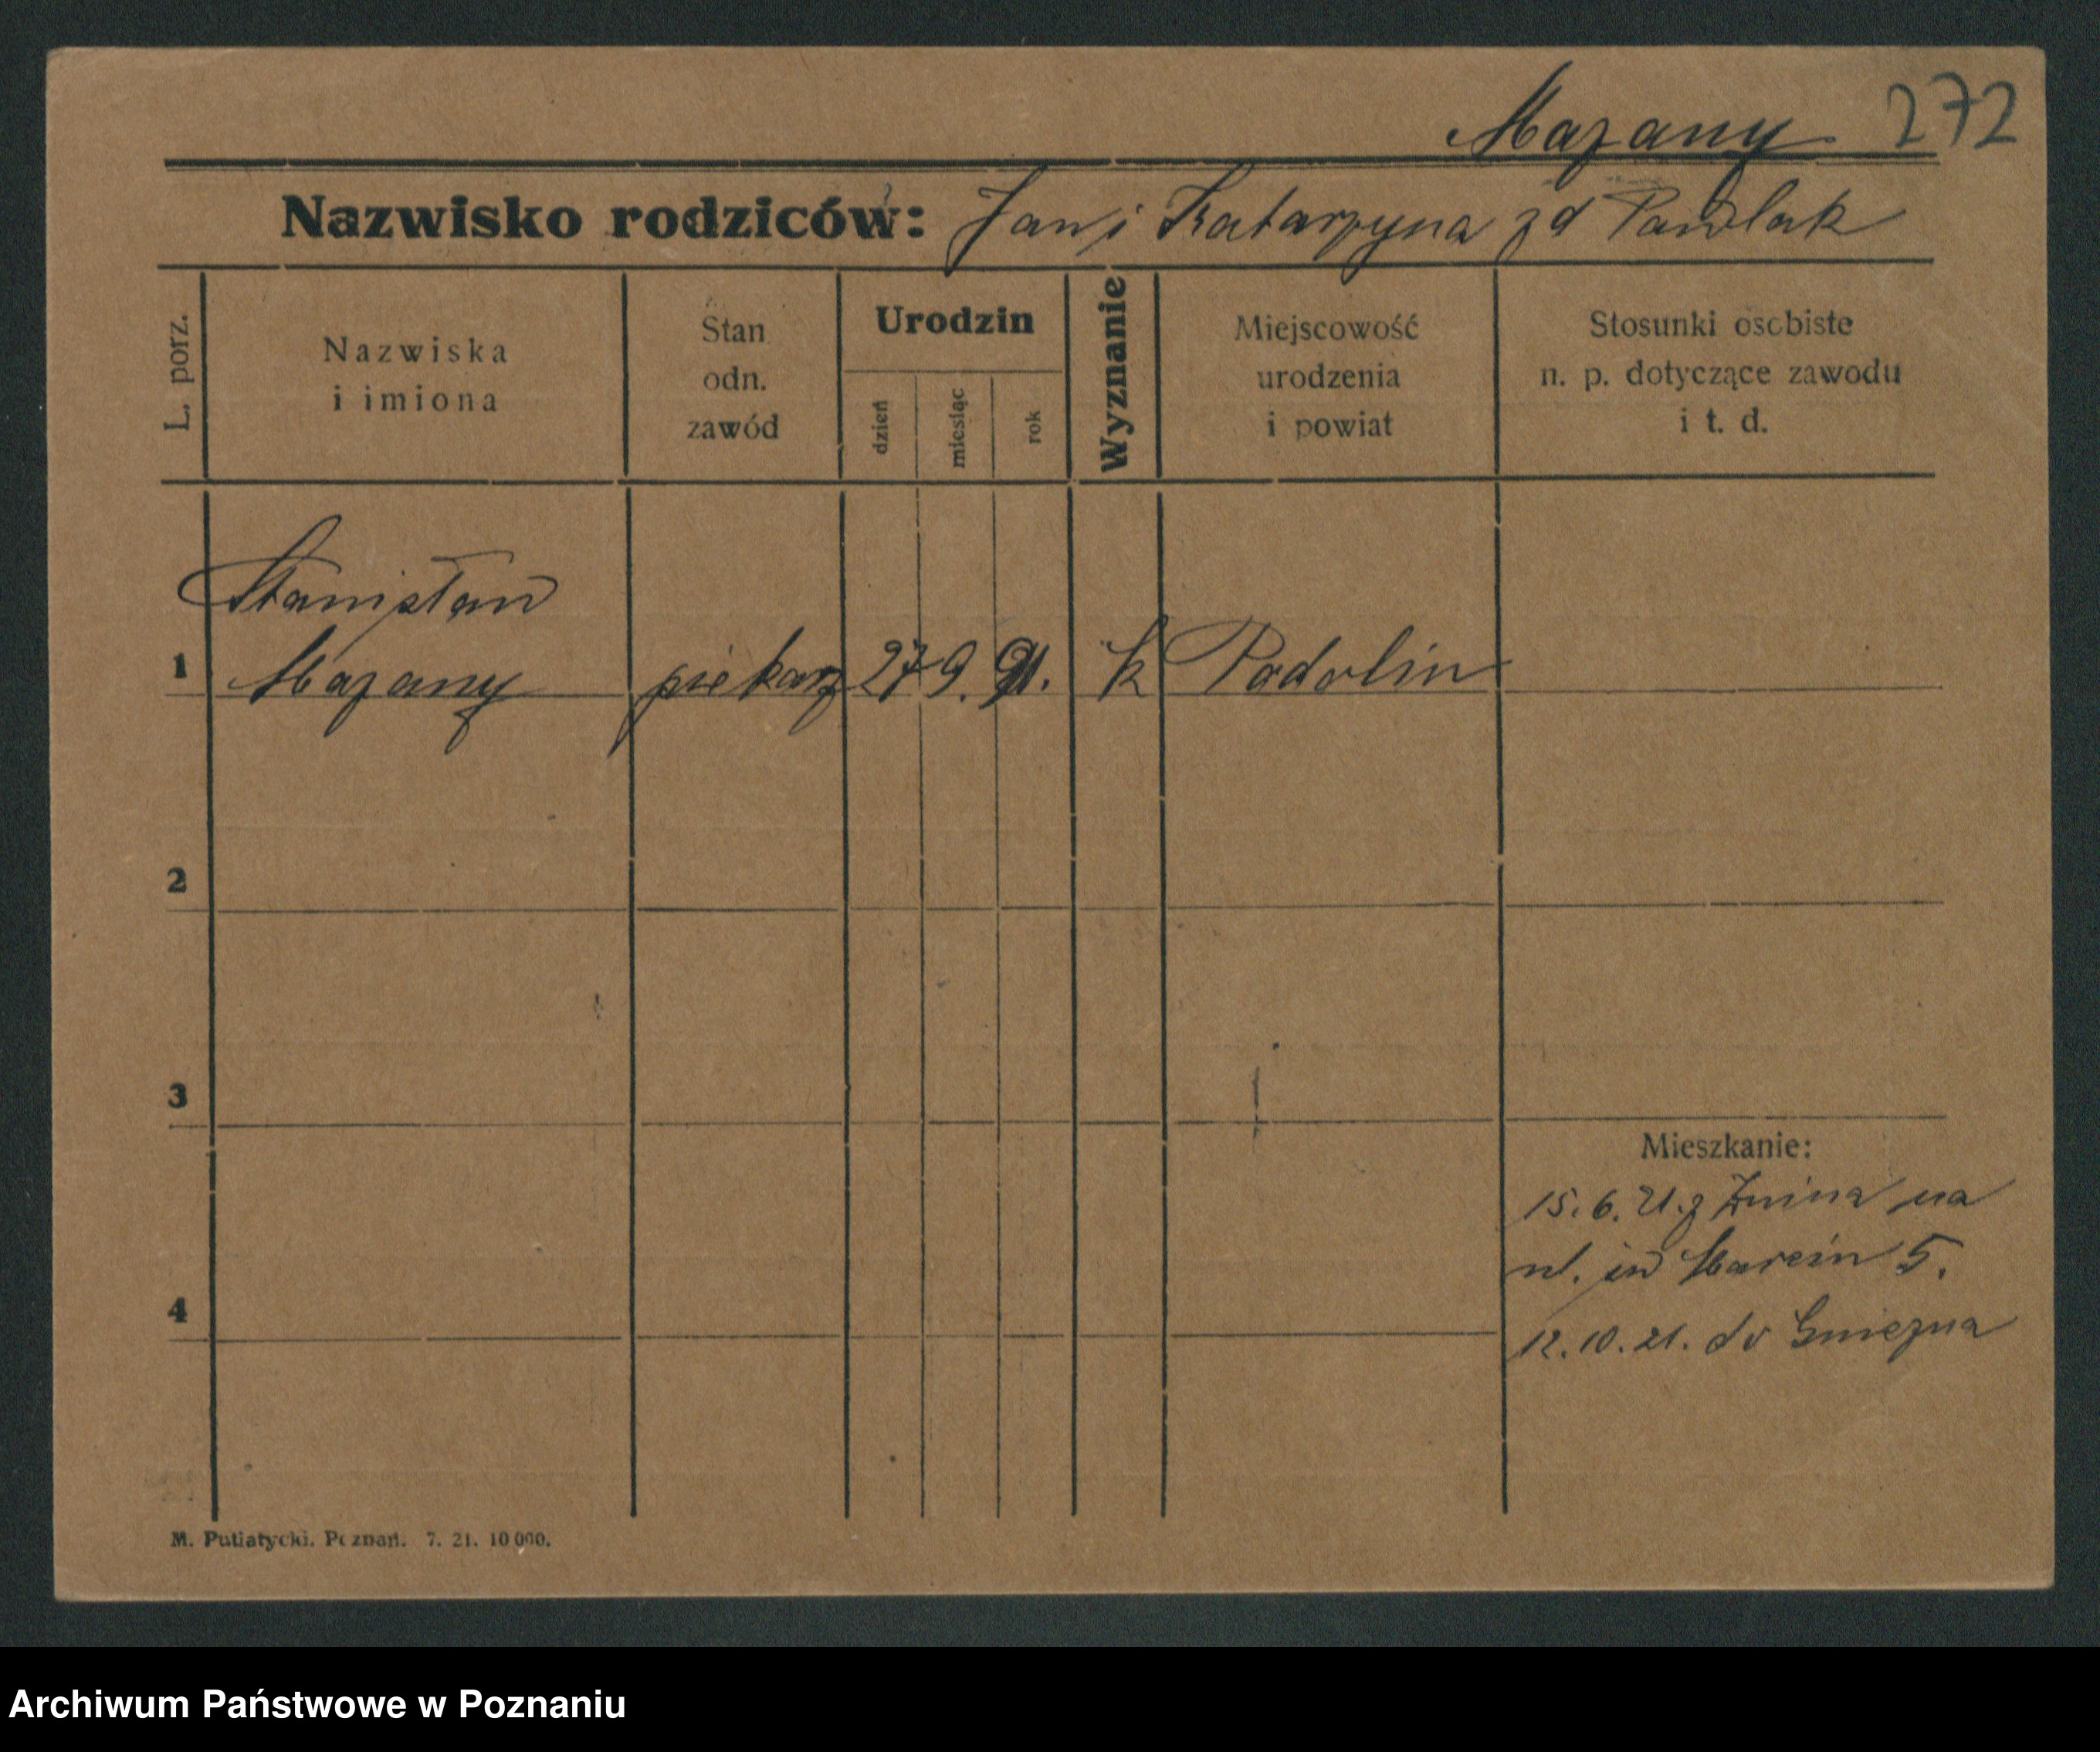 Mazany 272
Nazwisko rodziców: Jan i Katarzyna zd Pawlak
L. porz.
Nazwiska
i imiona
Stan
odn.
zawód
Urodzin
dzień
miesiąc
rok
Wyznanie
Miejscowość
urodzenia
i powiat
Stosunki osobiste
n. p. dotyczące zawodu
i t. d.
Stanisław
1 Mazany piekarz 27 9. 91. k Podolin
2
3
Mieszkanie:
15. 6. 21. z Żnina na
ul. św Marcin 5.
4
12. 10. 21. do Gniezna
M. Putiatycki. Poznań. 7. 21. 10 000.
Archiwum Państwowe w Poznaniu